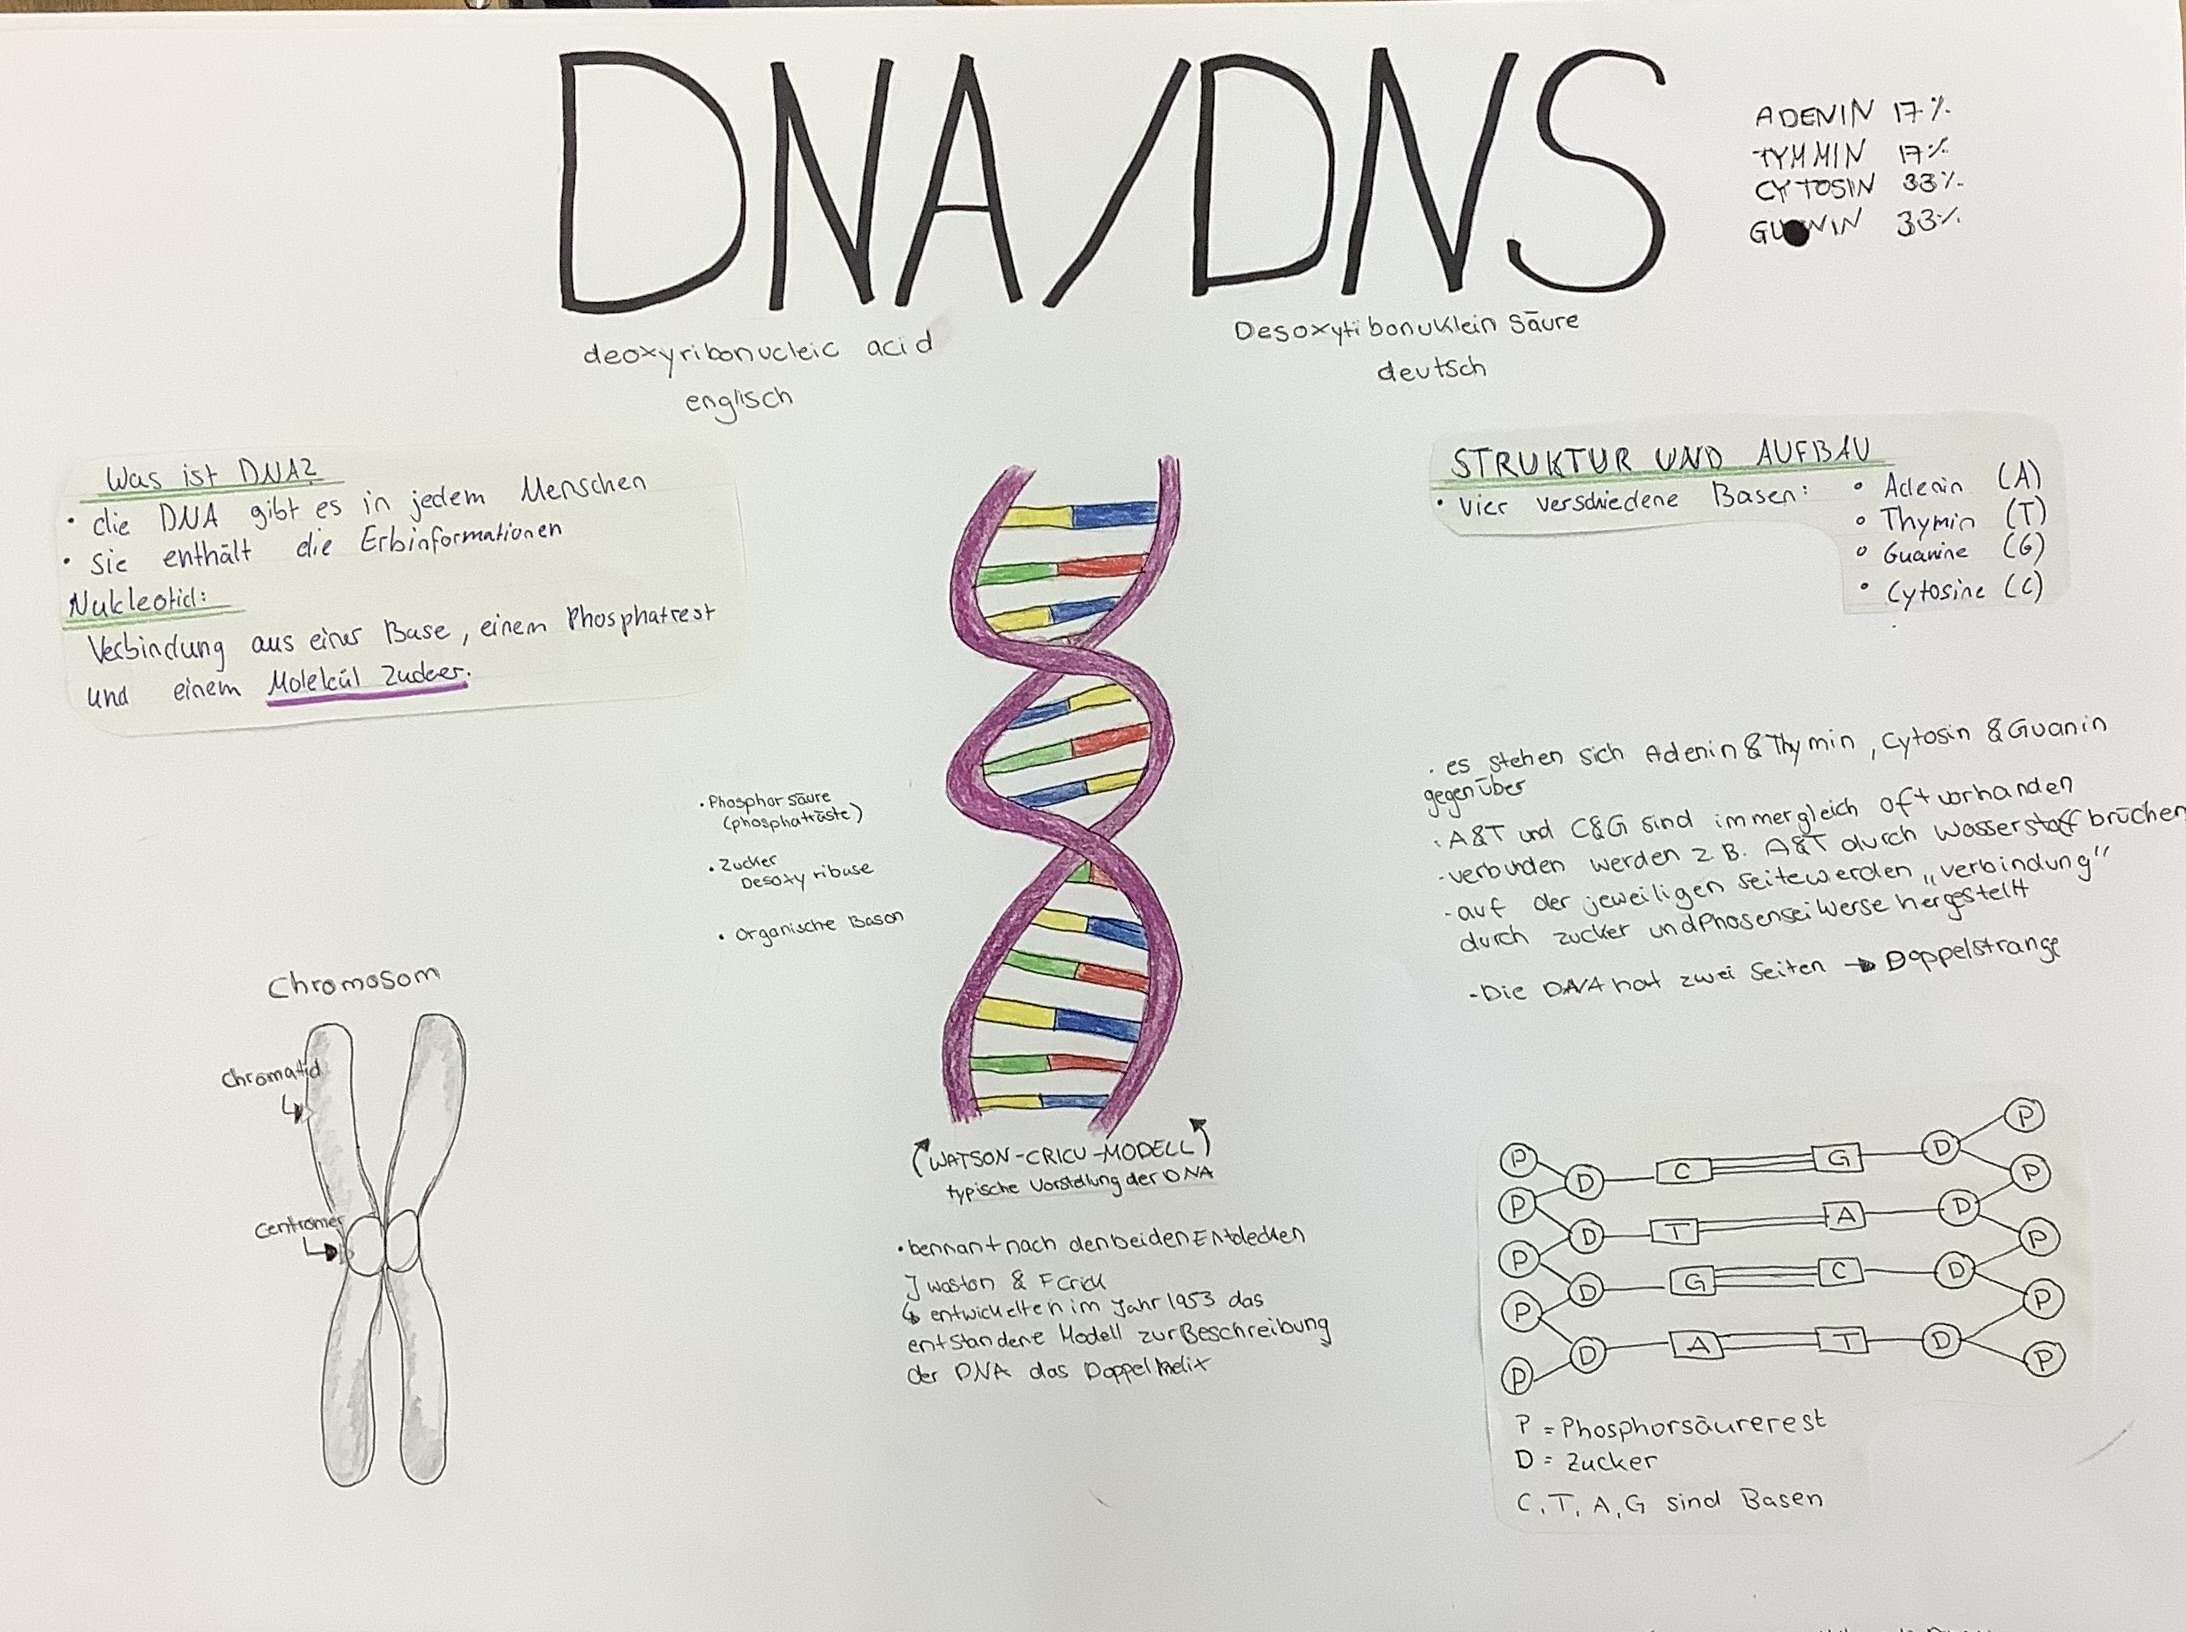 DNA/DNS
ADENIN 17%
TYMMIN 17%
CYTOSIN 33%
GUNIN 33%
deoxyribonucleic acid
englisch
Desoxyribonuklein Säure
deutsch
Was ist DNA?
• die DNA gibt es in jedem Menschen
• Sie enthält die Erbinformationen
Nukleotid:
Verbindung aus einer Base, einem Phosphatrest
und einem Molekül Zucker.
STRUKTUR UND AUFBAU
• Vier verschiedene Basen:
• Adenin (A)
• Thymin (T)
• Guanine (G)
• Cytosine (C)
• Phosphorsäure
(phosphaträste)
• Zucker
Desoxyribuse
• Organische Bason
• es stehen sich Adenin & Thymin, Cytosin & Guanin
gegenüber
• A&T und C&G sind immergleich oft vorhanden
- verbunden werden z.B. A&T durch Wasserstoffbrüchen
- auf der jeweiligen Seite werden „verbindung"
durch zucker und hergestellt
- Die DNA hat zwei Seiten → Doppelstrange
Chromosom
Chromatid
Centromer
(WATSON-CRICU-MODELL)
typische Vorstellung der DNA
• bennant nach den beiden Entdecken
J waston & F Crick
↳ entwickelten im Jahr 1953 das
entstandene Modell zur Beschreibung
der DNA das Doppelhelix
P D C G D P
P D T A D P
P D G C D P
P D A T D P
P P
P = Phosphorsäurerest
D = Zucker
C, T, A, G sind Basen